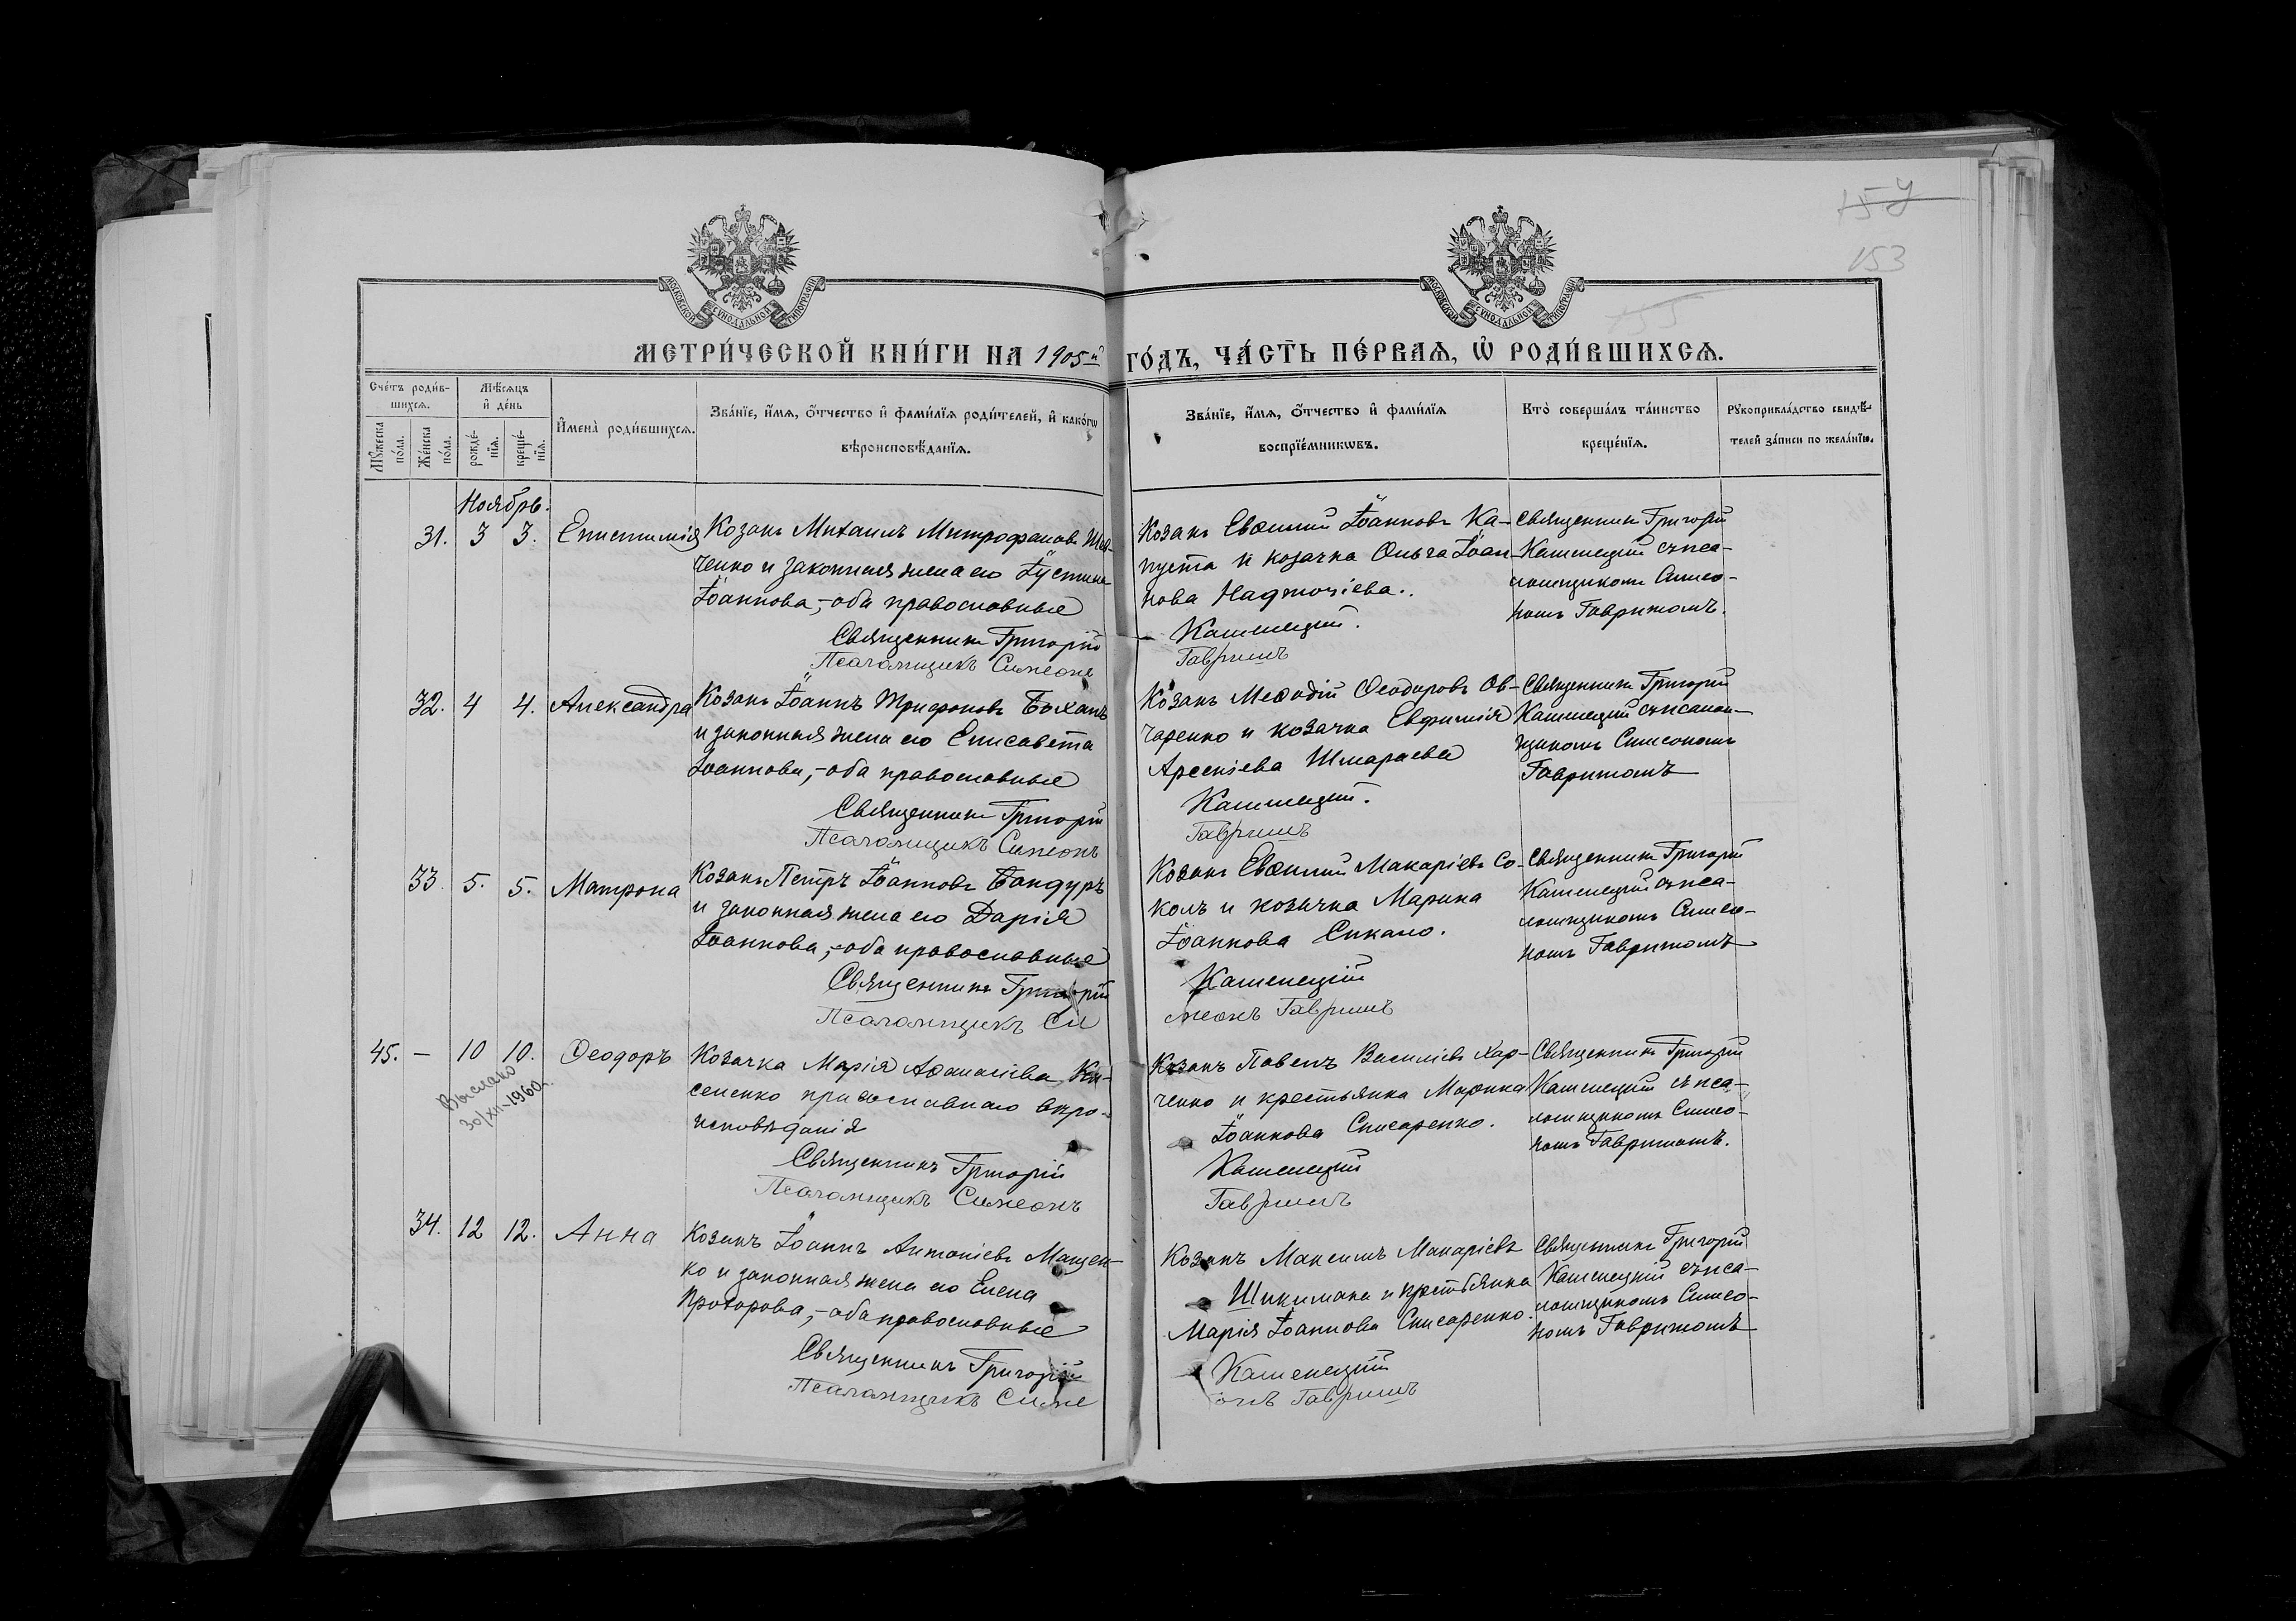 15У
153
155
МОСКОВСКОЙ СѴНОДАЛЬНОЙ ТИПОГРАФІИ
МОСКОВСКОЙ СѴНОДАЛЬНОЙ ТИПОГРАФІИ
МЕТРИ́ЧЕСКОЙ КНИ́ГИ НА 1905й ГО́ДЪ, ЧА́СТЬ ПЕ́РВАЯ, Ѡ҆ РОДИ́ВШИХСЯ.
Сче́тъ роди́в-
шихся.
Мѣ́сяцъ
и҆ де́нь
Мꙋ́жеска по́ла.
Же́нска по́ла.
рожде́-
нїя.
креще́-
нїя.
И҆мена̀ роди́вшихся.
Зва́нїе, и҆́мя, ѻ҆́тчество и҆ фами́лїя роди́телей, и҆ како́гѡ
вѣроисповѣ́данїя.
Зва́нїе, и҆́мя, ѻ҆́тчество и҆ фами́лїя
воспрїе́мникѡвъ.
Кто̀ соверша́лъ та́инство
креще́нїя.
Рꙋкоприкла́дство свидѣ́-
телей за́писи по жела́нїю.
Ноябрь.
31. 3 3. Епистимія
Козакъ Михаилъ Митрофановъ Шев-
ченко и законная жена его Іустина
Іоаннова,- оба православные
Священникъ Григорій
Псаломщикъ Симеонъ
Козакъ Евѳимій Іоанновъ Ка-
пуста и козачка Ольга Іоан-
нова Надточіева.
Каменецкій.
Гавришъ
Священникъ Григорій
Каменецкій съ пса-
ломщикомъ Симео-
номъ Гавришомъ.
32. 4 4. Александра
Козакъ Іоаннъ Трифоновъ Боханъ
и законная жена его Елисавета
Іоаннова,- оба православные
Священникъ Григорій
Псаломщикъ Симеонъ
Козакъ Меѳодій Ѳеодоровъ Ов-
чаренко и козачка Евфимія
Арсеніева Шмараева
Каменецкій.
Гавришъ
Священникъ Григорій
Каменецкій съ псалом-
щикомъ Симеономъ
Гавришомъ
33. 5. 5. Матрона
Козакъ Петръ Іоанновъ Бандуръ
и законная жена его Дарія
Іоаннова,- оба православные
Священникъ Григорій
Псаломщикъ Си
Козакъ Евѳимій Макаріевъ Со-
колъ и козачка Марина
Іоаннова Сикало.
Каменецкій
меонъ Гавришъ
Священникъ Григорій
Каменецкій съ пса-
ломщикомъ Симео-
номъ Гавришомъ
45. — 10 10. Ѳеодоръ
Выслано
30/XII-1960г.
Козачка Марія Аѳанасіева Ки-
сенко православнаго вѣро-
исповѣданія
Священникъ Григорій
Псаломщикъ Симеонъ
Козакъ Павелъ Василіевъ Хар-
ченко и крестьянка Марина
Іоаннова Слисаренко.
Каменецкій
Гавришъ
Священникъ Григорій
Каменецкій съ пса-
ломщикомъ Симео-
номъ Гавришомъ.
34. 12 12. Анна
Козакъ Іоаннъ Антоніевъ Мащен-
ко и законная жена его Елена
Прохорова,- оба православные
Священникъ Григорій
Псаломщикъ Симе
Козакъ Максимъ Макаріевъ
и крестьянка
Марія Іоаннова Слисаренко.
Каменецкій
онъ Гавришъ
Священникъ Григорій
Каменецкій съ пса-
ломщикомъ Симео-
номъ Гавришомъ